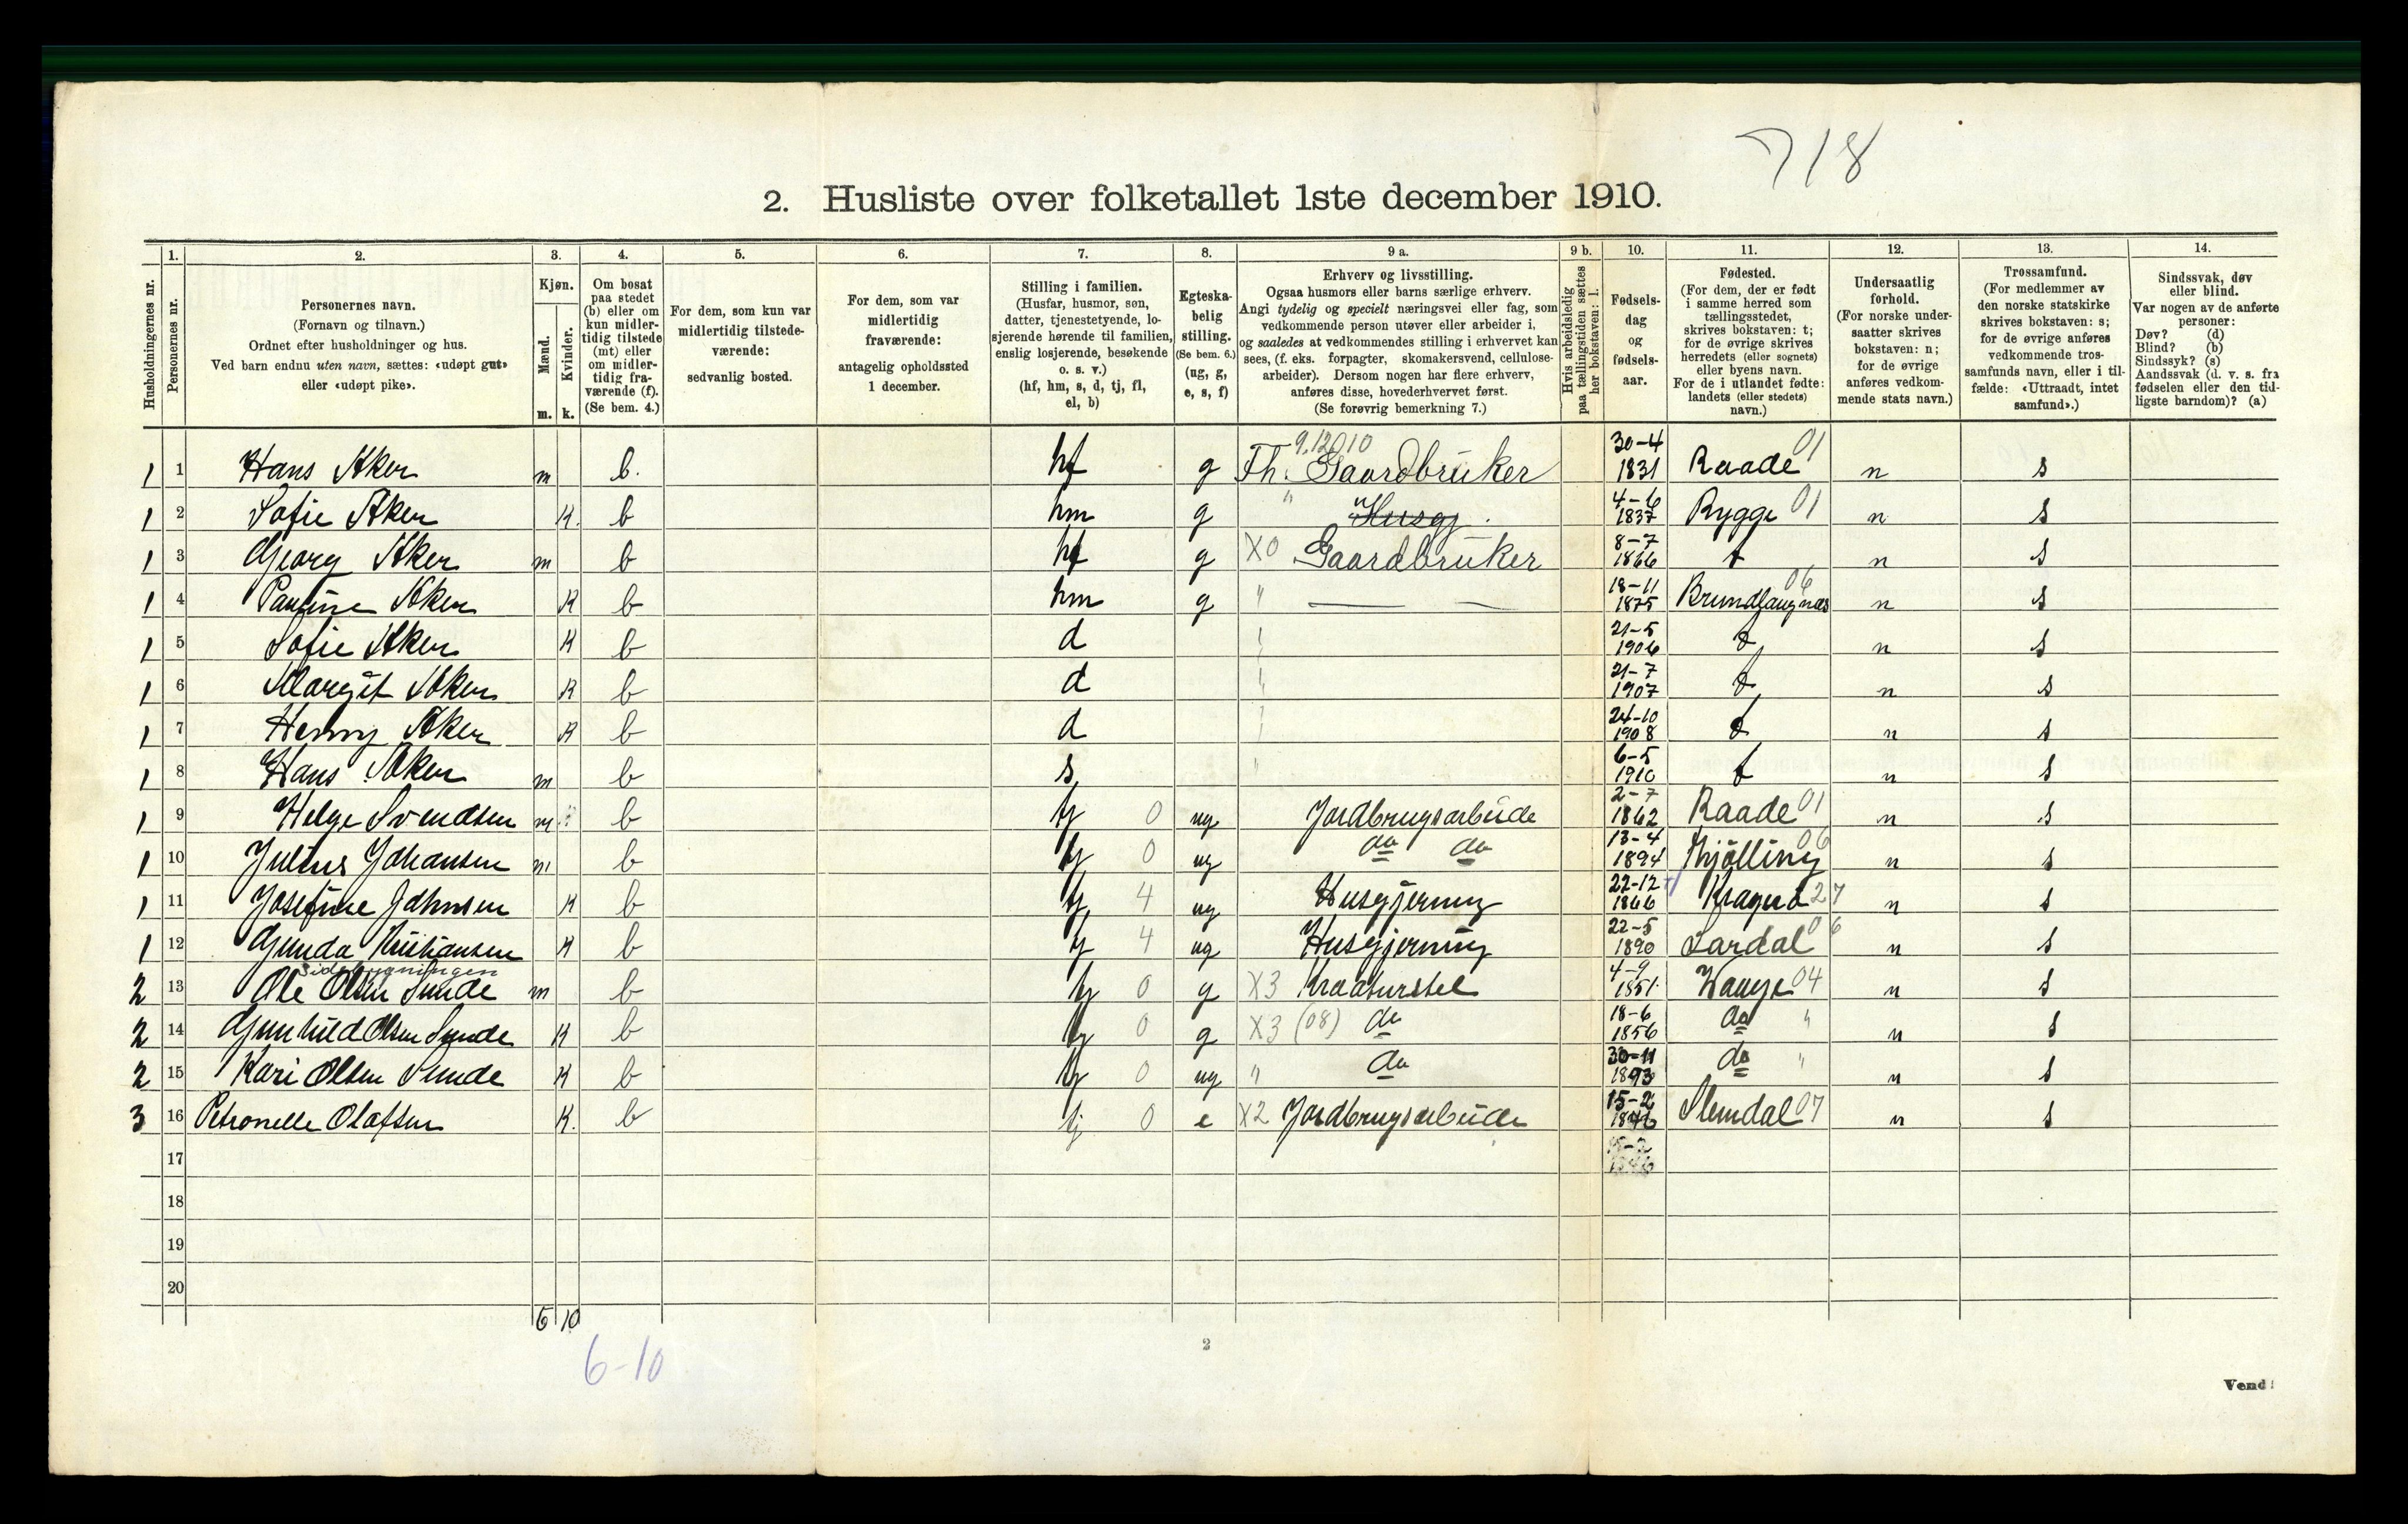 718
2. Husliste over folketallet 1ste december 1910.
Husholdningernes nr.
1.
Personernes nr.
2.
Personernes navn.
(Fornavn og tilnavn.)
Ordnet efter husholdninger og hus.
Ved barn endnu uten navn, sættes: «udøpt gut»
eller «udøpt pike».
3.
Kjøn.
Mænd.
Kvinder.
m. k.
4.
Om bosat
paa stedet
(b) eller om
kun midler-
tidig tilstede
(mt) eller
om midler-
tidig fra-
værende (f).
(Se bem. 4.)
5.
For dem, som kun var
midlertidig tilstede-
værende:
sedvanlig bosted.
6.
For dem, som var
midlertidig
fraværende:
antagelig opholdssted
1 december.
7.
Stilling i familien.
(Husfar, husmor, søn,
datter, tjenestetyende, lo-
sjerende hørende til familien,
enslig losjerende, besøkende
o. s. v.)
(hf, hm, s, d, tj, fl,
el, b)
8.
Egteska-
belig
stilling.
(Se bem. 6.)
(ug, g,
e, s, f)
9 a.
Erhverv og livsstilling.
Ogsaa husmors eller barns særlige erhverv.
Angi tydelig og specielt næringsvei eller fag, som
vedkommende person utøver eller arbeider i,
og saaledes at vedkommendes stilling i erhvervet kan
sees, (f. eks. forpagter, skomakersvend, cellulose-
arbeider). Dersom nogen har flere erhverv,
anføres disse, hovederhvervet først.
(Se forøvrig bemerkning 7.)
9 b.
Hvis arbeidsledig
paa tællingstiden sættes
her bokstaven: l.
10.
Fødsels-
dag
og
fødsels-
aar.
11.
Fødested.
(For dem, der er født
i samme herred som
tællingsstedet,
skrives bokstaven: t;
for de øvrige skrives
herredets (eller sognets)
eller byens navn.
For de i utlandet fødte:
landets (eller stedets)
navn.)
12.
Undersaatlig
forhold.
(For norske under-
saatter skrives
bokstaven: n;
for de øvrige
anføres vedkom-
mende stats navn.)
13.
Trossamfund.
(For medlemmer av
den norske statskirke
skrives bokstaven: s;
for de øvrige anføres
vedkommende tros-
samfunds navn, eller i til-
fælde: «Uttraadt, intet
samfund».)
14.
Sindssvak, døv
eller blind.
Var nogen av de anførte
personer:
Døv? (d)
Blind? (b)
Sindssyk? (s)
Aandssvak (d. v. s. fra
fødselen eller den tid-
ligste barndom)? (a)
9.12010
1 1 Hans Aker m b. hf g Th. Gaardbruker 30-4 1831 Raade 01 n s
1 2 Sofie Aker K. b hm g " Husgj. 4-6 1837 Rygge 01 n s
1 3 Georg Aker m b hf g X0 Gaardbruker 8-7 1866 t n s
1 4 Pauline Aker K b hm g " — — 18-11 1875 Brundlangnæs 06 n s
1 5 Sofie Aker K b d " 21-5 1906 t n s
1 6 Margit Aker K b d " 21-7 1907 t n s
1 7 Henny Aker K b d " 24-10 1908 t n s
1 8 Hans Aker m b s " 6-5 1910 t n s
1 9 Helge Svendsen m b tj 0 ug Jordbrugsarbeide 2-7 1862 Raade 01 n s
1 10 Julius Johansen m b tj 0 ug do do 13-4 1894 Kjølling 06 n s
1 11 Josefine Johnsen K b tj 4 ug Husgjerning 22-12 1866 Kragerø 27 n s
1 12 Gunda Kristiansen K b tj 4 ug Husgjerning 22-5 1890 Lardal 06 n s
Sidebygningen
2 13 Ole Olsen Sunde m b tj 0 g X3 Kreaturstel 4-9 1851 Waage 04 n s
2 14 Gunhild Olsen Sunde K b tj 0 g X3 (08) do 18-6 1856 do " n s
2 15 Kari Olsen Sunde K b tj 0 ug " do 30-11 1893 do " n s
3 16 Petronelle Olafsen K. b tj 0 e X2 Jordbrugsarbeide 15-2 1846 Slemdal 07 n s
17
18
19
20
6 10
6-10
2
Vend!